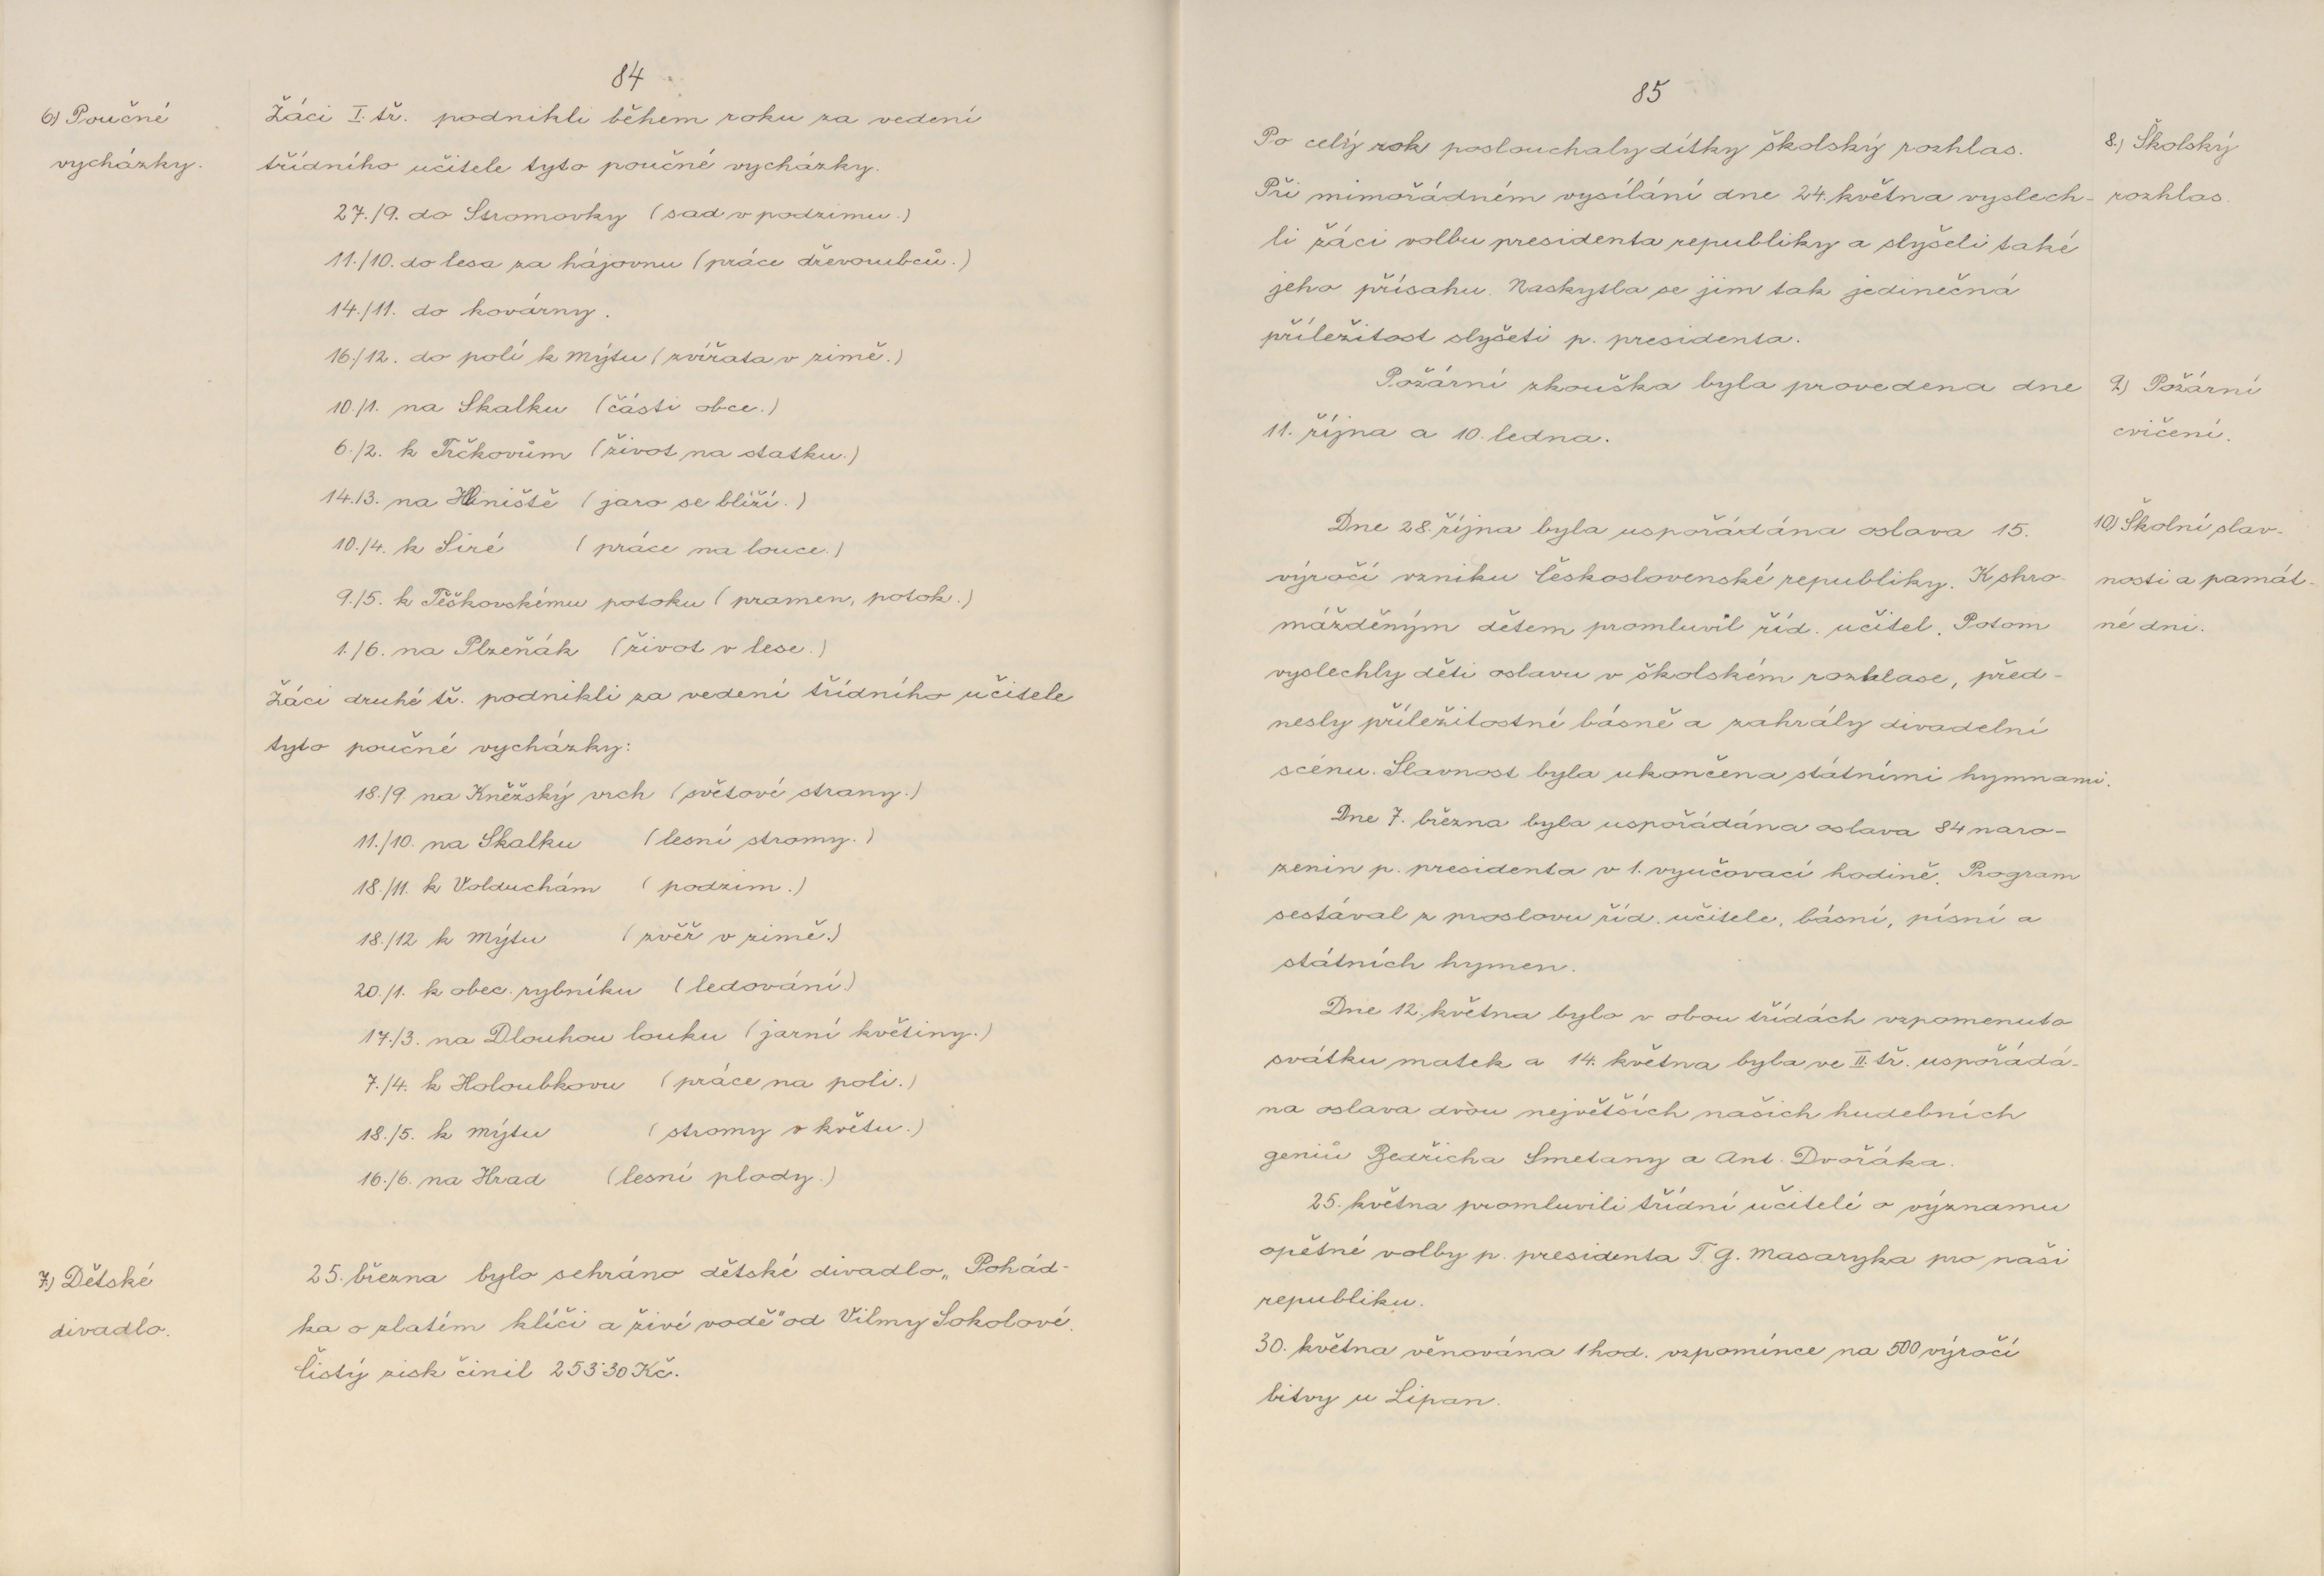 84
6) Poučné
vycházky.
Žáci I. tř. podnikli během roku za vedení
třídního učitele tyto poučné vycházky.
27./9. do Stromovky (sad v podzimu.)
11./10. do lesa za hájovnu (práce dřevorubců.)
14./11. do kovárny.
16./12. do polí k Mýtu (zvířata v zimě.)
10./1. na Skalku (části obce.)
6./2. k Trčkovům (život na statku.)
14./3. na Hliniště (jaro se blíží.)
10./4. k Siré (práce na louce.)
9./5. k Těškovskému potoku (pramen, potok.)
1./6. na Plzeňák (život v lese.)
Žáci druhé tř. podnikli za vedení třídního učitele
tyto poučné vycházky:
18./9. na Kněžský vrch (světové strany.)
11./10. na Skalku (lesní stromy.)
18./11. k Volduchám (podzim.)
18./12 k Mýtu (zvěř v zimě.)
20./1. k obec. rybníku (ledování.)
17./3. na Dlouhou louku (jarní květiny.)
7./4. k Holoubkovu (práce na poli.)
18./5. k Mýtu (stromy v květu.)
16./6. na Hrad (lesní plody.)
7.) Dětské
divadlo.
25. března bylo sehráno dětské divadlo „Pohád-
ka o zlatém klíči a živé vodě" od Vilmy Sokolové.
Čistý zisk činil 253·30 Kč.
85
Po celý rok poslouchaly dítky školský rozhlas.
8.) Školský
Při mimořádném vysílání dne 24. května vyslech-
rozhlas.
li žáci volbu presidenta republiky a slyšeli také
jeho přísahu. Naskytla se jim tak jedinečná
příležitost slyšeti p. presidenta.
Požární zkouška byla provedena dne
9.) Požární
11. října a 10. ledna.
cvičení.
Dne 28. října byla uspořádána oslava 15.
10) Školní slav-
výročí vzniku Československé republiky. K shro-
nosti a památ-
mážděným dětem promluvil říd. učitel. Potom
né dni.
vyslechly děti oslavu v školském rozhlase, před-
nesly příležitostné básně a zahrály divadelní
scénu. Slavnost byla ukončena státními hymnami.
Dne 7. března byla uspořádána oslava 84 naro-
zenin p. presidenta v 1. vyučovací hodině. Program
sestával z proslovu říd. učitele, básní, písní a
státních hymen.
Dne 12. května bylo v obou třídách vzpomenuto
svátku matek a 14. května byla ve II. tř. uspořádá-
na oslava dvou největších našich hudebních
geniů Bedřicha Smetany a Ant. Dvořáka.
25. května promluvili třídní učitelé o významu
opětné volby p. presidenta T. G. Masaryka pro naši
republiku.
30. května věnována 1 hod. vzpomínce na 500 výročí
bitvy u Lipan.